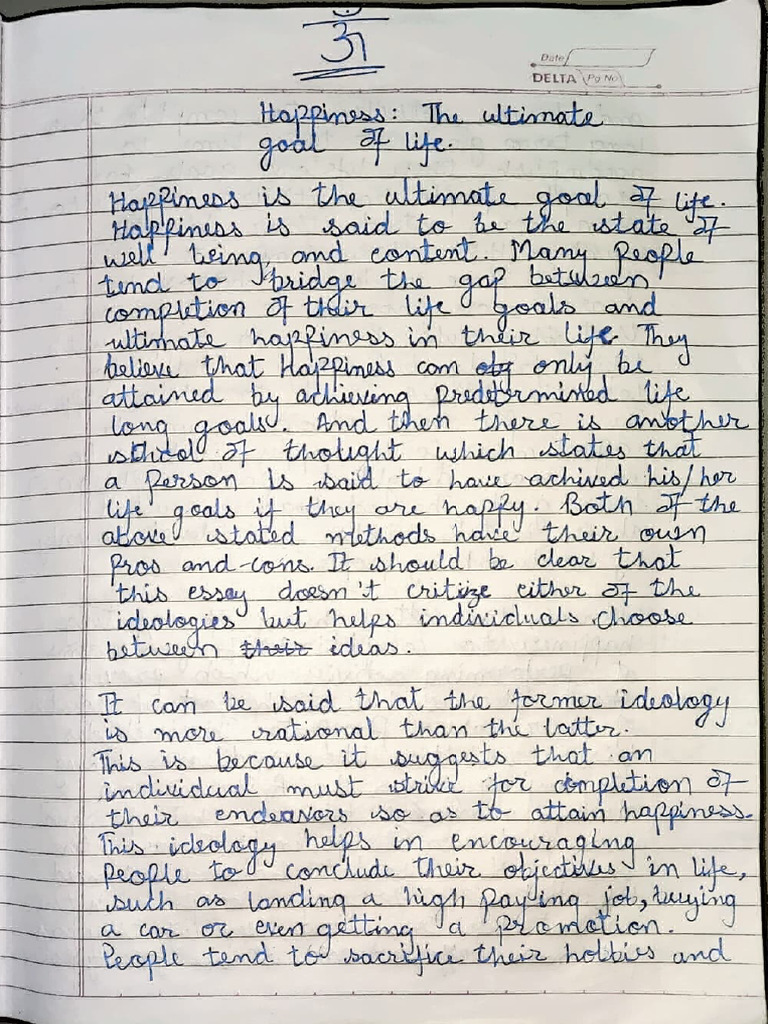 ॐ
Date
DELTA Pg No
Happiness: The ultimate
goal of life.
Happiness is the ultimate goal of life.
Happiness is said to be the state of
well being and content. Many People
tend to bridge the gap between
completion of their life goals and
ultimate happiness in their life. They
believe that Happiness can only be
attained by achieving Predetermined life
long goals. And then there is another
school of thought which states that
a Person is said to have achived his/her
life goals if they are happy. Both of the
above stated methods have their own
Pros and cons. It should be clear that
this essay doesn't critize either of the
ideologies but helps individuals choose
between their ideas.
It can be said that the former ideology
is more rational than the latter.
This is because it suggests that an
individual must strive for completion of
their endeavors so as to attain happiness.
This ideology helps in encouraging
People to conclude their objectives in life,
such as landing a high paying job, buying
a car or even getting a Promotion.
People tend to sacrifice their hobbies and